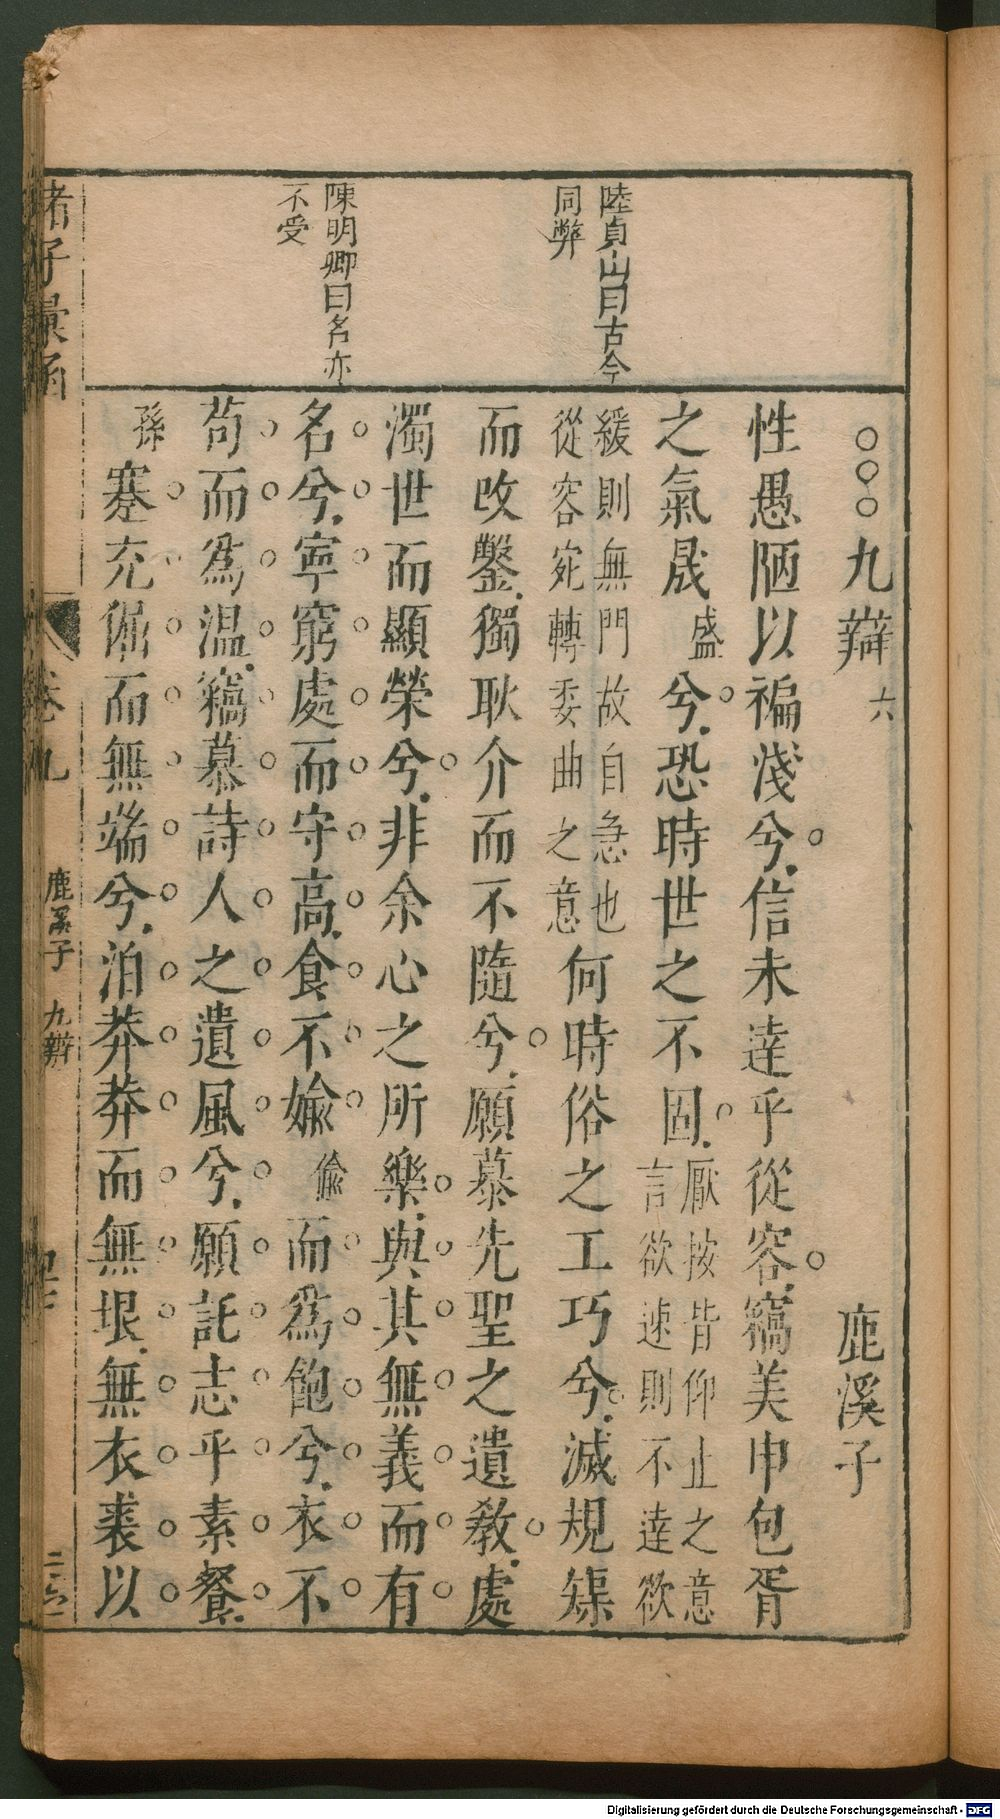 陸貞山曰古今
同弊
陳明卿曰名亦
不受
○○○九辯 六 鹿溪子
性愚陋以褊淺兮信未達乎從容竊美申包胥
之氣晟盛兮恐時世之不固厭按皆仰止之意
言欲速則不達欲
緩則無門故自急也
從容宛轉委曲之意何時俗之工巧兮滅規榘
而改鑿獨耿介而不隨兮願慕先聖之遺教處
濁世而顯榮兮非余心之所樂與其無義而有
名兮寧窮處而守高食不媮偷而為飽兮衣不
苟而為温竊慕詩人之遺風兮願託志乎素餐
蹇充倔而無端兮泊莽莽而無垠無衣裘以
孫
諸子彙函
卷九
鹿溪子 九辯
Digitalisierung gefördert durch die Deutsche Forschungsgemeinschaft - DFG